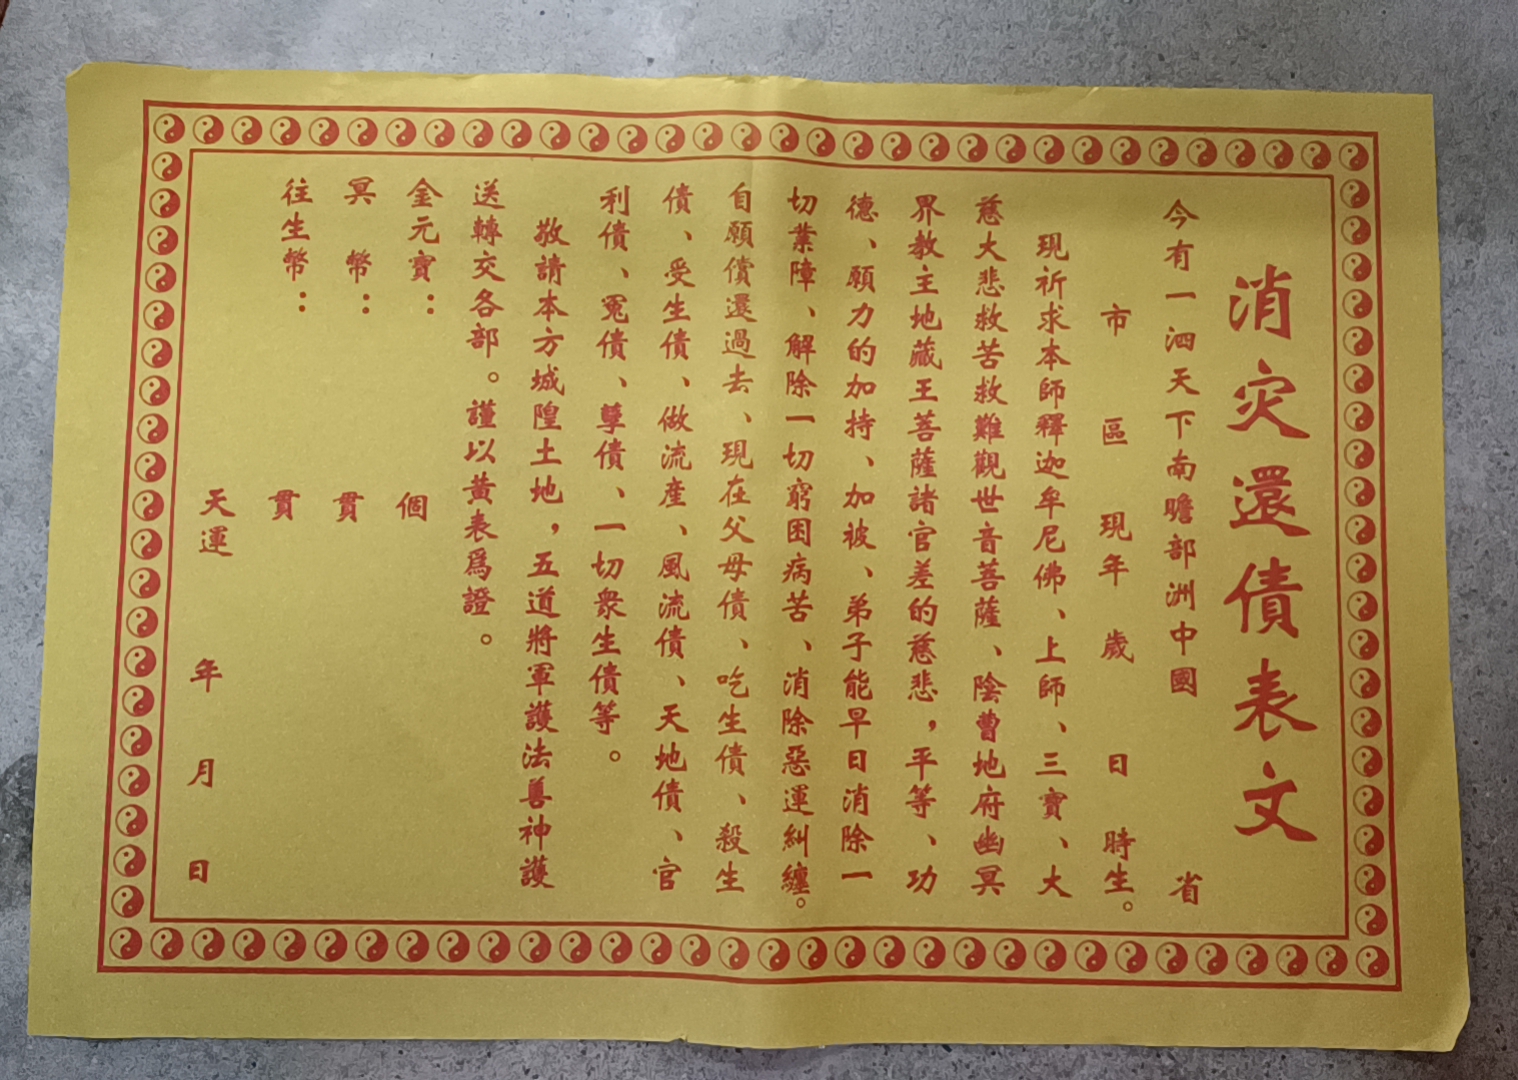 消灾還債表文
今有一泗天下南瞻部洲中國 省
市 區 現年 歲 日 時生。
現祈求本師釋迦牟尼佛、上師、三寶、大
慈大悲救苦救難觀世音菩薩、陰曹地府幽冥
界教主地藏王菩薩諸官差的慈悲，平等、功
德、願力的加持、加被、弟子能早日消除一
切業障、解除一切窮困病苦、消除惡運糾纏。
自願償還過去、現在父母債、吃生債、殺生
債、受生債、做流産、風流債、天地債、官
利債、冤債、孽債、一切衆生債等。
敬請本方城隍土地，五道將軍護法善神護
送轉交各部。謹以黃表爲證。
金元寶： 個
冥幣： 貫
往生幣： 貫
天運 年 月 日